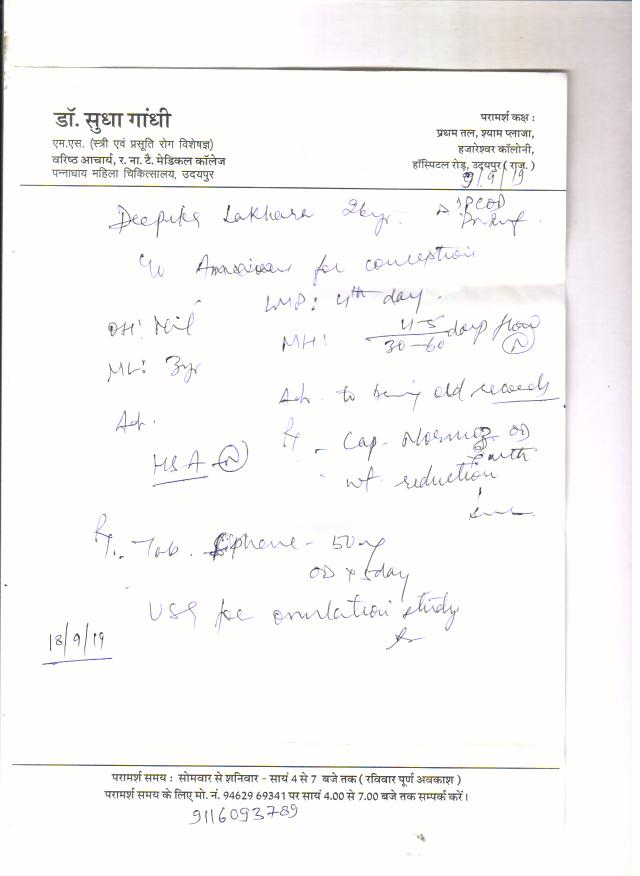 डॉ. सुधा गांधी
एम.एस. (स्त्री एवं प्रसूति रोग विशेषज्ञ)
वरिष्ठ आचार्य, र. ना. टै. मेडिकल कॉलेज
पन्नाधाय महिला चिकित्सालय, उदयपुर
परामर्श कक्ष :
प्रथम तल, श्याम प्लाजा,
हजारेश्वर कॉलोनी,
हॉस्पिटल रोड़, उदयपुर ( राज. )
9/9/19
Deepika Lakhara 26yr. PCOD
c/o Anxious for conception
LMP: 4th day.
OH: Nil
MH: 4-5 days flow
30-60 N
ML: 3yr
Adv. to bring old records
Adv.
HSA N
Rx - Cap. OD
wt. reduction
Rx. Tab. 50mg
OD x 5day
USG for ovulation study
18/9/19
परामर्श समय : सोमवार से शनिवार - सायं 4 से 7 बजे तक ( रविवार पूर्ण अवकाश )
परामर्श समय के लिए मो. नं. 94629 69341 पर सायं 4.00 से 7.00 बजे तक सम्पर्क करें।
9116093789